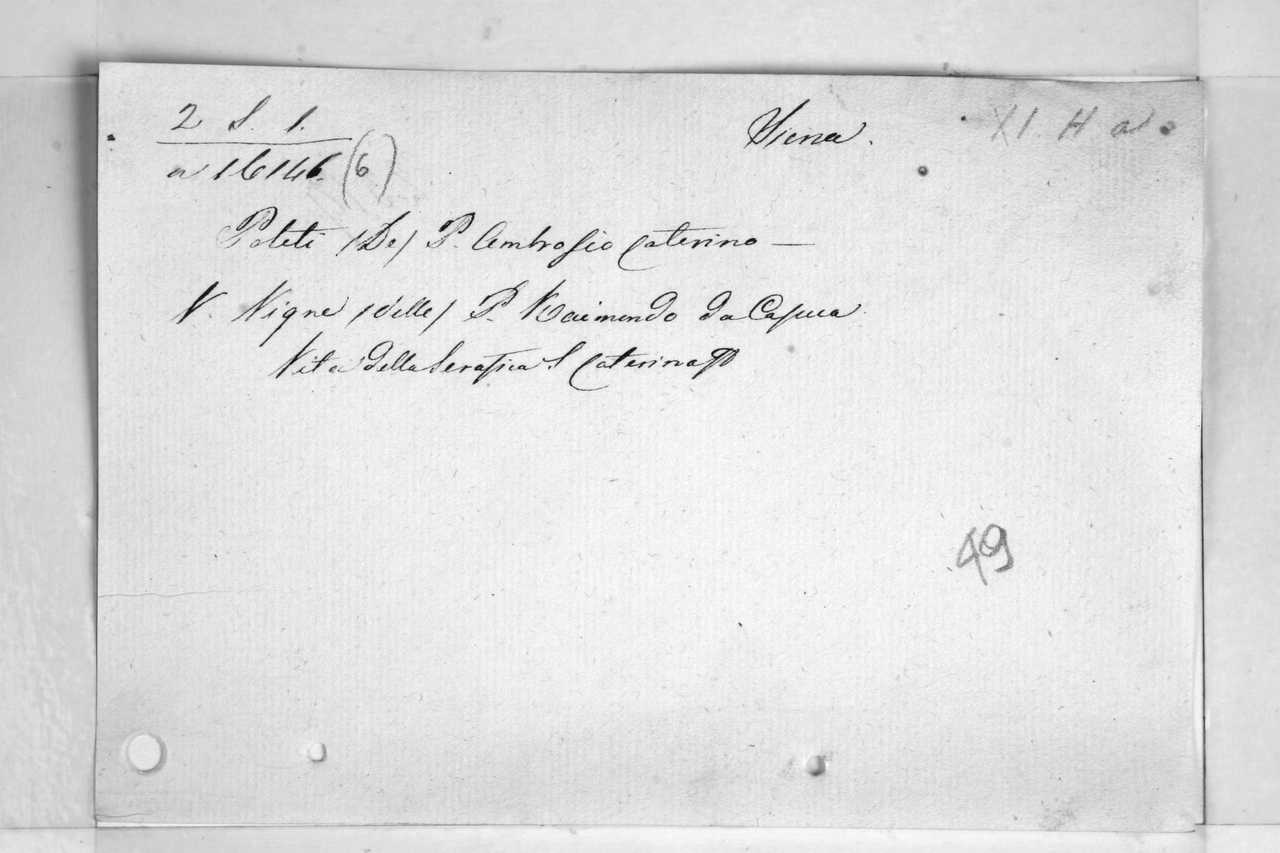 2 S. 1. Siena. XI H a
a 16146. (6)
Politi (De) P. Ambrosio Caterino —
V. Vigne (delle) P. Raimondo da Capua
Vita della Serafica S Caterina
49